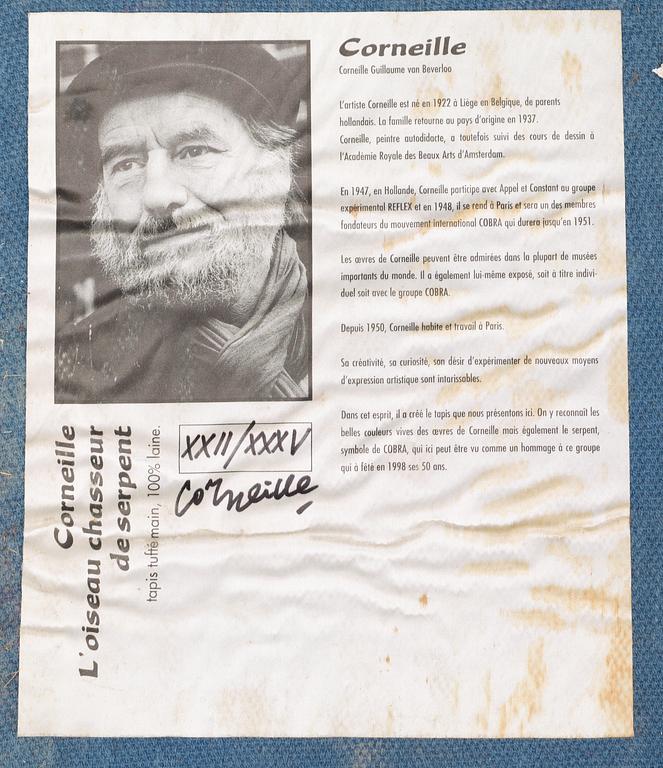 Corneille
Corneille Guillaume van Beverloo
L'artiste Corneille est né en 1922 à Liège en Belgique, de parents
hollandais. La famille retourne au pays d'origine en 1937.
Corneille, peintre autodidacte, a toutefois suivi des cours de dessin à
l'Académie Royale des Beaux Arts d'Amsterdam.
En 1947, en Hollande, Corneille participe avec Appel et Constant au groupe
expérimental REFLEX et en 1948, il se rend à Paris et sera un des membres
fondateurs du mouvement international COBRA qui durera jusqu'en 1951.
Les œvres de Corneille peuvent être admirées dans la plupart de musées
importants du monde. Il a également lui-même exposé, soit à titre indivi-
duel soit avec le groupe COBRA.
Depuis 1950, Corneille habite et travail à Paris.
Sa créativité, sa curiosité, son désir d'expérimenter de nouveaux moyens
d'expression artistique sont intarissables.
Dans cet esprit, il a créé le tapis que nous présentons ici. On y reconnaît les
belles couleurs vives des œvres de Corneille mais également le serpent,
symbole de COBRA, qui ici peut être vu comme un hommage à ce groupe
qui à fêté en 1998 ses 50 ans.
Corneille
L'oiseau chasseur
de serpent
tapis tufté main, 100% laine.
XXII/XXXV
Corneille